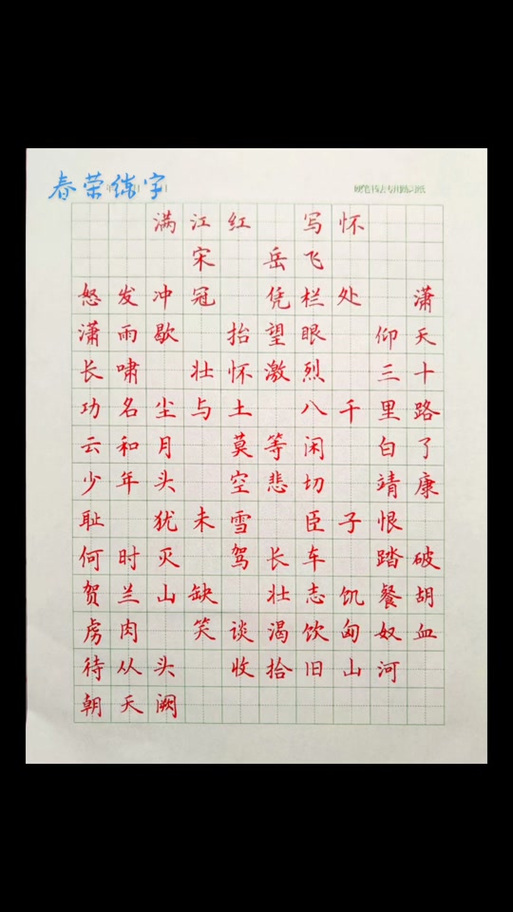 春荣练字
满江红 写怀
宋 岳飞
怒发冲冠 凭栏处 潇
潇雨歇 抬望眼 仰天
长啸 壮怀激烈 三十
功名尘与土 八千里路
云和月 莫等闲 白了
少年头 空悲切 靖康
耻 犹未雪 臣子恨
何时灭 驾长车 踏破
贺兰山缺 壮志饥餐胡
虏肉 笑谈渴饮匈奴血
待从头 收拾旧山河
朝天阙